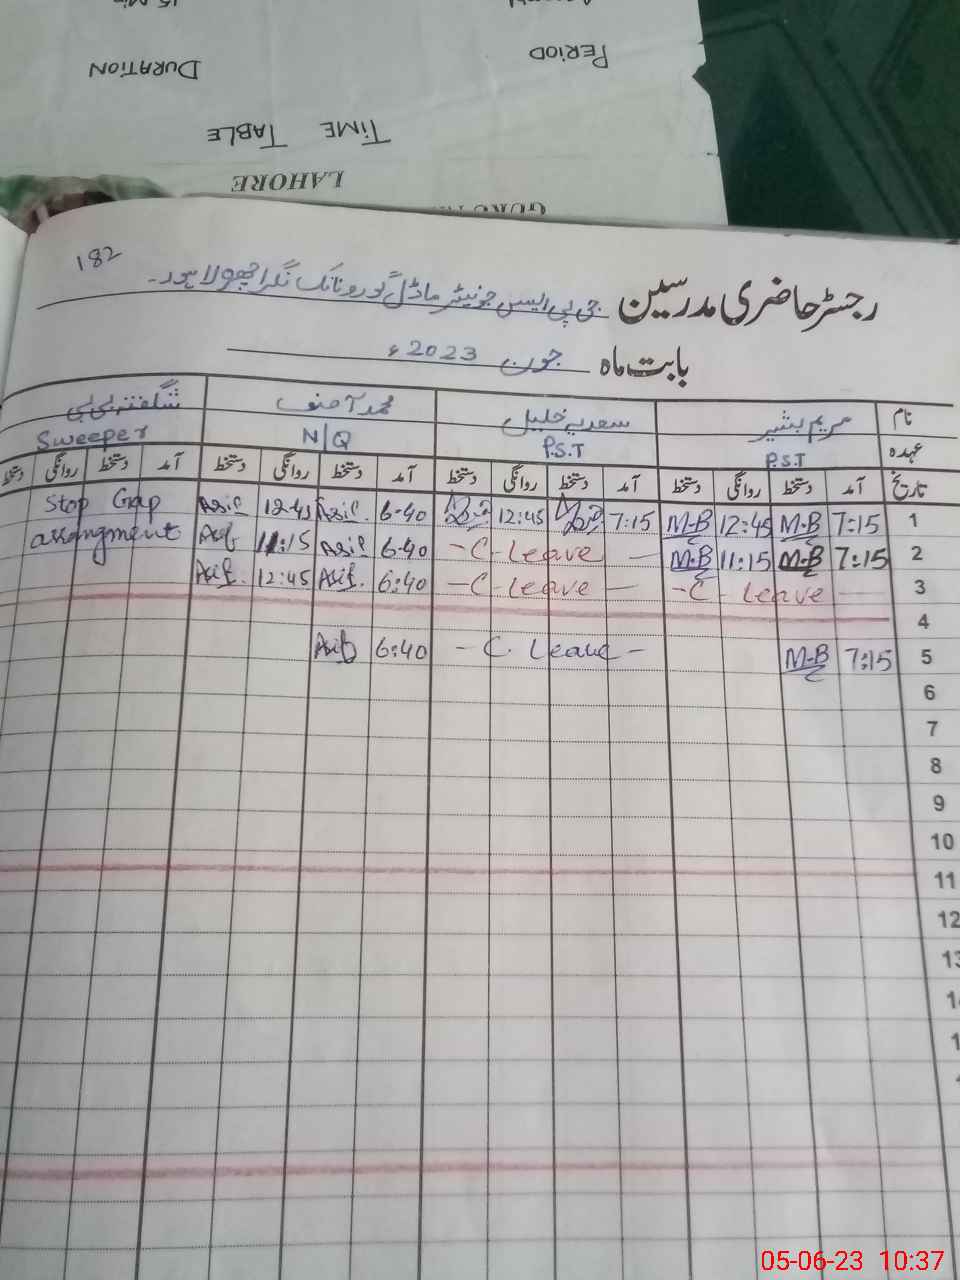 15 Min
PERIOD DURATION
TIME TABLE
LAHORE
182
رجسٹر حاضری مدرسین جی پی ایس جونیئر ماڈل گورونانک نگر اچھولاہور۔
بابت ماہ جون 2023ء
نام مریم بشیر سعدیہ خلیل محمد آصف شگفتہ بی بی
عہدہ P.S.T P.S.T N/Q Sweeper
تاریخ آمد دستخط روانگی دستخط آمد دستخط روانگی دستخط آمد دستخط روانگی دستخط آمد دستخط روانگی دستخط
1 7:15 M-B 12:45 M-B 7:15 12:45 6-40 Asif. 12-45 Asif Stop Gap
2 7:15 M-B 11:15 M-B -C-Leave- 6-40 Asif 11:15 Asif arrangment
3 -C-Leave- -C-Leave- 6:40 Asif. 12:45 Asif.
4
5 7:15 M-B -C.Leave- 6:40 Asif
6
7
8
9
10
11
12
13
05-06-23 10:37